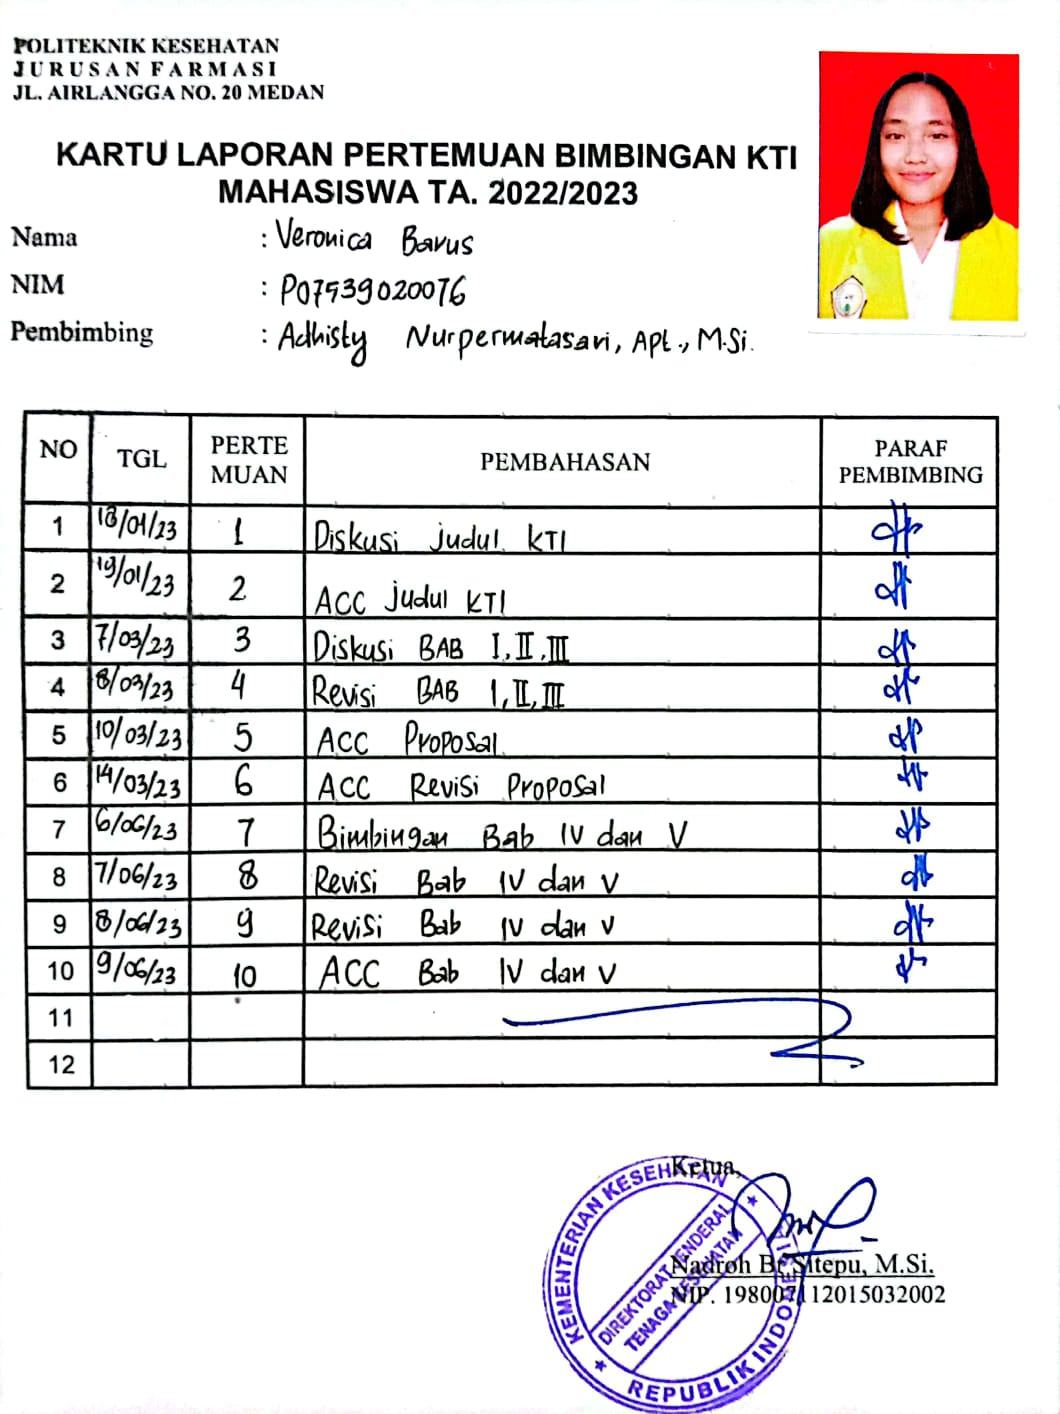 POLITEKNIK KESEHATAN
JURUSAN FARMASI
JL. AIRLANGGA NO. 20 MEDAN
KARTU LAPORAN PERTEMUAN BIMBINGAN KTI
MAHASISWA TA. 2022/2023
Nama : Veronica Barus
NIM : P07539020076
Pembimbing : Adhisty Nurpermatasari, Apt., M.Si.
NO TGL PERTE MUAN PEMBAHASAN PARAF PEMBIMBING
1 18/01/23 1 Diskusi judul KTI
2 19/01/23 2 ACC judul KTI
3 7/03/23 3 Diskusi BAB I, II, III
4 8/03/23 4 Revisi BAB I, II, III
5 10/03/23 5 ACC Proposal
6 14/03/23 6 ACC Revisi Proposal
7 6/06/23 7 Bimbingan Bab IV dan V
8 7/06/23 8 Revisi Bab IV dan V
9 8/06/23 9 Revisi Bab IV dan V
10 9/06/23 10 ACC Bab IV dan V
11
12
Ketua,
KEMENTERIAN KESEHATAN
DIREKTORAT JENDERAL
TENAGA KESEHATAN
REPUBLIK INDONESIA
Nadroh Br Sitepu, M.Si.
NIP. 198007112015032002